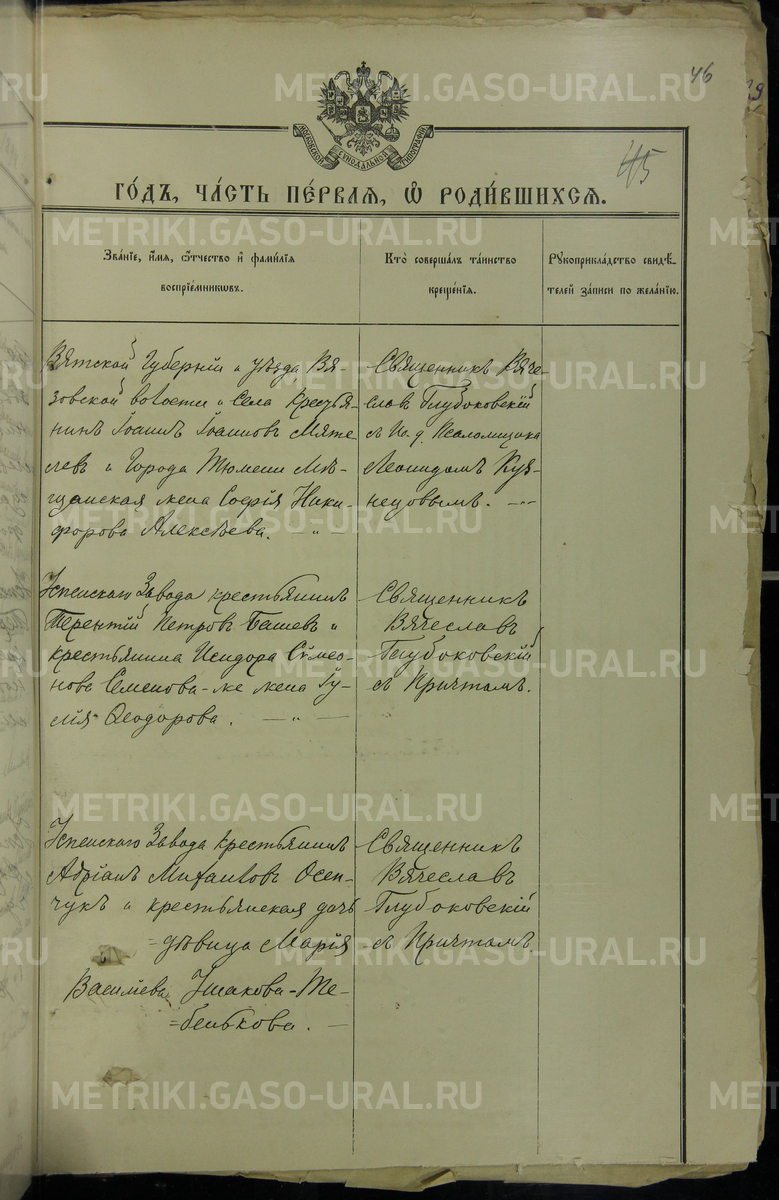 46
45
МОСКОВСКОЙ СѴНОДАЛЬНОЙ ТИПОГРАФІИ
ГО́ДЪ, ЧА́СТЬ ПЕ́РВАѦ, Ѽ РОДИ́ВШИХСѦ.
Зва́нїе, и҆́мѧ, ѻ҆́тчество и҆ фами́лїѧ
воспрїе́мниковъ.
Кто̀ соверша́лъ та́инство
креще́нїѧ.
Рꙋкоприкла́дство свидѣ́-
телей за́писи по жела́нїю.
Вятской Губерніи и уѣзда Вя-
зовской волости и Села Крестья-
нинъ Іоаннъ Іоанновъ Мяте-
левъ и Города Тюмени Мѣ-
щанская жена Софія Ники-
форова Алексѣева. — „ —
Священникъ Вяче-
славъ Глубоковскій
съ И. д. Псаломщика
Леонидомъ Куз-
нецовымъ. — „ —
Успенскаго Завода крестьянинъ
Терентій Петровъ Башевъ и
крестьянина Исидора Сѵмео-
нова Семенова-же жена Іу-
лія Ѳеодорова. — „ —
Священникъ
Вячеславъ
Глубоковскій
съ Причтомъ.
Успенскаго Завода крестьянинъ
Адріанъ Михаиловъ Осен-
чукъ и крестьянская дочь
=дѣвица Марія
Василіева Ушакова-Те-
=бенькова. —
Священникъ
Вячеславъ
Глубоковскій
съ Причтомъ.
METRIKI.GASO-URAL.RU